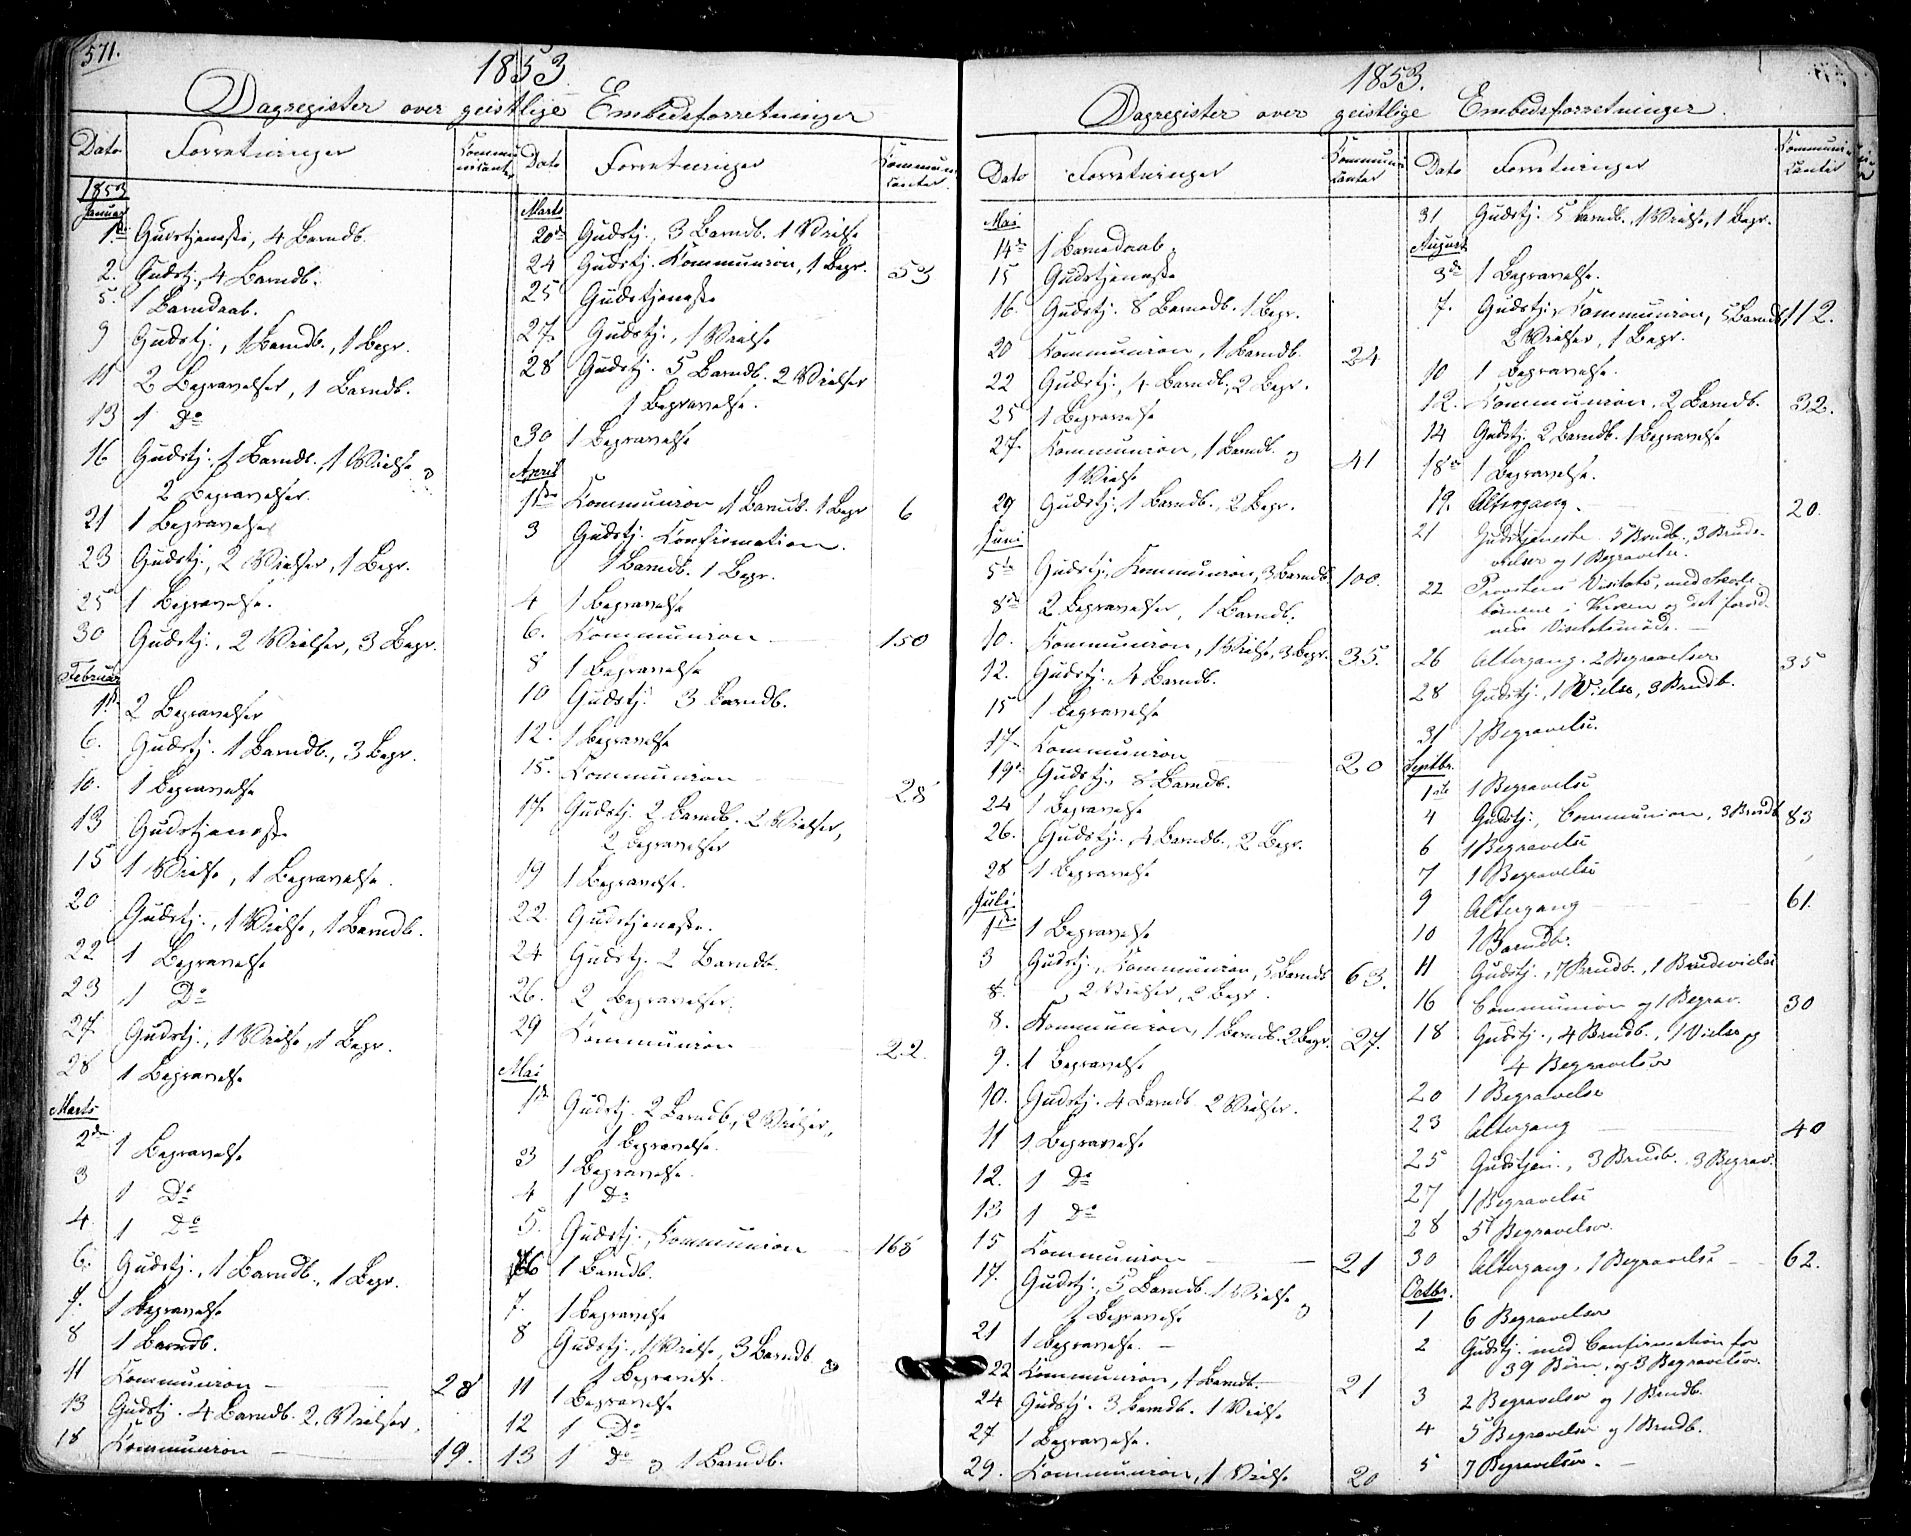 571.
1853.
Dagregister over geistlige Embedsforretninger
Dato Forretninger Kommunicanter
1853
Januar
1ste Gudstjeneste, 4 Barndb.
2. Gudstj., 4 Barndb.
5. 1 Barnedaab.
9 Gudstj., 1 Barndb., 1 Begr.
11 2 Begravelser, 1 Barndb.
13 1 Do
16 Gudstj., 1 Barndb. 1 Vielse og
2 Begravelser.
21 1 Begravelse
23 Gudstj., 2 Vielser, 1 Begr.
25 1 Begravelse.
30 Gudstj., 2 Vielser, 3 Begr.
Februar
1ste 2 Begravelser
6. Gudstj. 1 Barndb., 3 Begr.
10. 1 Begravelse
13 Gudstjeneste
15 1 Vielse, 1 Begravelse.
20 Gudstj., 1 Vielse, 1 Barndb.
22 1 Begravelse
23 1 Do
27. Gudstj., 1 Vielse, 1 Begr.
28 1 Begravelse
Marts
2den 1 Begravelse
3 1 Do
4. 1 Do
6. Gudstj., 1 Barndb., 1 Begr.
7. 1 Begravelse
8 1 Barndb.
11 Kommunion 28
13 Gudstj. 4 Barndb. 2 Vielser.
18 Kommunion 19.
Dato Forretninger Kommunicanter
Marts
20de Gudstj., 3 Barndb. 1 Vielse
24 Gudstj. Kommunion, 1 Begr. 53
25 Gudstjeneste
27. Gudstj., 1 Vielse
28 Gudstj. 5 Barndb. 2 Vielser
1 Begravelse.
30 1 Begravelse
April
1ste Kommunion 1 Barndb. 1 Begr 6
3 Gudstj. Konfirmation.
1 Barndb. 1 Begr.
4 1 Begravelse
6. Kommunion 150
8 1 Begravelse
10 Gudstj. 3 Barndb.
12. 1 Begravelse
15. Kommunion 28
17. Gudstj. 2 Barndb. 2 Vielser,
2 Begravelser
19 1 Begravelse.
22. Gudstjeneste.
24 Gudstj. 2 Barndb.
26. 2 Begravelser.
29 Kommunion 22.
Mai
1ste Gudstj. 2 Barndb., 2 Vielser,
1 Begravelse.
3 1 Begravelse.
4 1 Do
5. Gudstj., Kommunion 168
6 1 Barndb.
7. 1 Begravelse
8 Gudstj., 1 Vielse, 3 Barndb og
1 Begravelse.
11 1 Begravelse
12 1 Do
13 1 Do og 1 Barndb.
1853.
Dagregister over geistlige Embedsforretninger.
Dato Forretninger Kommunicanter
Mai
14de 1 Barnedaab.
15 Gudstjeneste
16. Gudstj. 8 Barnedb. 1 Begr.
20 Kommunion, 1 Barndb. 24
22 Gudstj., 4 Barndb., 2 Begr.
25 1 Begravelse
27. Kommunion, 1 Barndb. og 41
1 Vielse
29 Gudstj., 1 Barndb., 2 Begr.
Juni
5te Gudstj., Kommunion, 3 Barndb 100.
8de 2 Begravelser, 1 Barndb.
10. Kommunion, 1 Vielse, 3 Begr. 35.
12. Gudstj., 4 Barndb.
15 1 Begravelse
17. Kommunion 20
19. Gudstj., 8 Barndb.
24 1 Begravelse
26. Gudstj. 4 Barndb., 2 Begr.
28 1 Begravelse
Juli
1ste 1 Begravelse
3 Gudstj., Kommunion, 5 Barndb 63.
8. 2 Vielser, 2 Begr.
8. Kommunion, 1 Barndb. 2 Begr. 27.
9. 1 Begravelse
10. Gudstj. 4 Barndb. 2 Vielser.
11 1 Begravelse
12. 1 Do
13 1 Do
15 Kommunion 21
17. Gudstj., 5 Barndb. 1 Vielse og
1 Begravelse
21 1 Begravelse.
22 Kommunion, 1 Barndb. 21
24 Gudstj. 3 Barndb. 1 Vielse
27 1 Begravelse.
29. Kommunion, 1 Vielse 20
Dato Forretninger Kommunicanter
31 Gudstj. 5 Barndb., 1 Vielse, 1 Begr.
August
3de 1 Begravelse.
7. Gudstj., Kommunion, 5 Barndb 112.
2 Vielser, 1 Begr.
10 1 Begravelse.
12. Kommunion, 2 Barndb. 32.
14 Gudstj. 2 Barndb. 1 Begravelse
18de 1 Begravelse.
19. Altergang. 20.
21 Gudstjeneste 5 Brndb., 3 Brude-
vielser og 1 Begravelse.
22 Provstens Visitats, med Skole-
børnene i Kirken og det forord-
nede Visitatsmøde.
26 Altergang. 2 Begravelser 35
28 Gudstj., 1 Vielse, 3 Brndb.
31 1 Begravelse.
Septbr.
1ste 1 Begravelse
4 Gudstj., Communion, 3 Brndb 83
6 1 Begravelse
7 1 Begravelse
9 Altergang 61.
10 1 Barndb.
11 Gudstj., 7 Brndb., 1 Brudevielse
16 Communion og 1 Begrav. 30
18 Gudstj., 4 Brndb., 1 Vielse og
4 Begravelser
20 1 Begravelse
23 Altergang 40
25 Gudstjen., 3 Brndb., 3 Begrav.
27 1 Begravelse
28 5 Begravelser.
30 Altergang, 1 Begravelse 62.
Octbr.
1 6 Begravelser
2 Gudstj. med Confirmation for
39 Børn, og 3 Begravelser.
3 2 Begravelser og 1 Brndb.
4 5 Begravelser og 1 Brndb.
5 7 Begravelser.